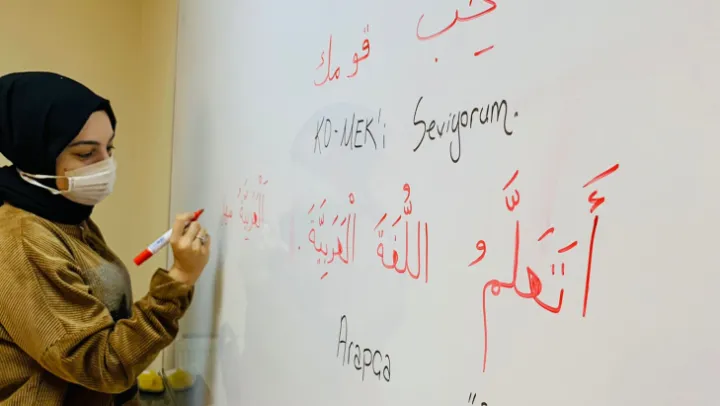 قومك
KO-MEK'i Seviyorum.
أَتَعَلَّمُ اللُّغَةَ الْعَرَبِيَّةَ .
الْعَرَبِيَّةَ
Arapça